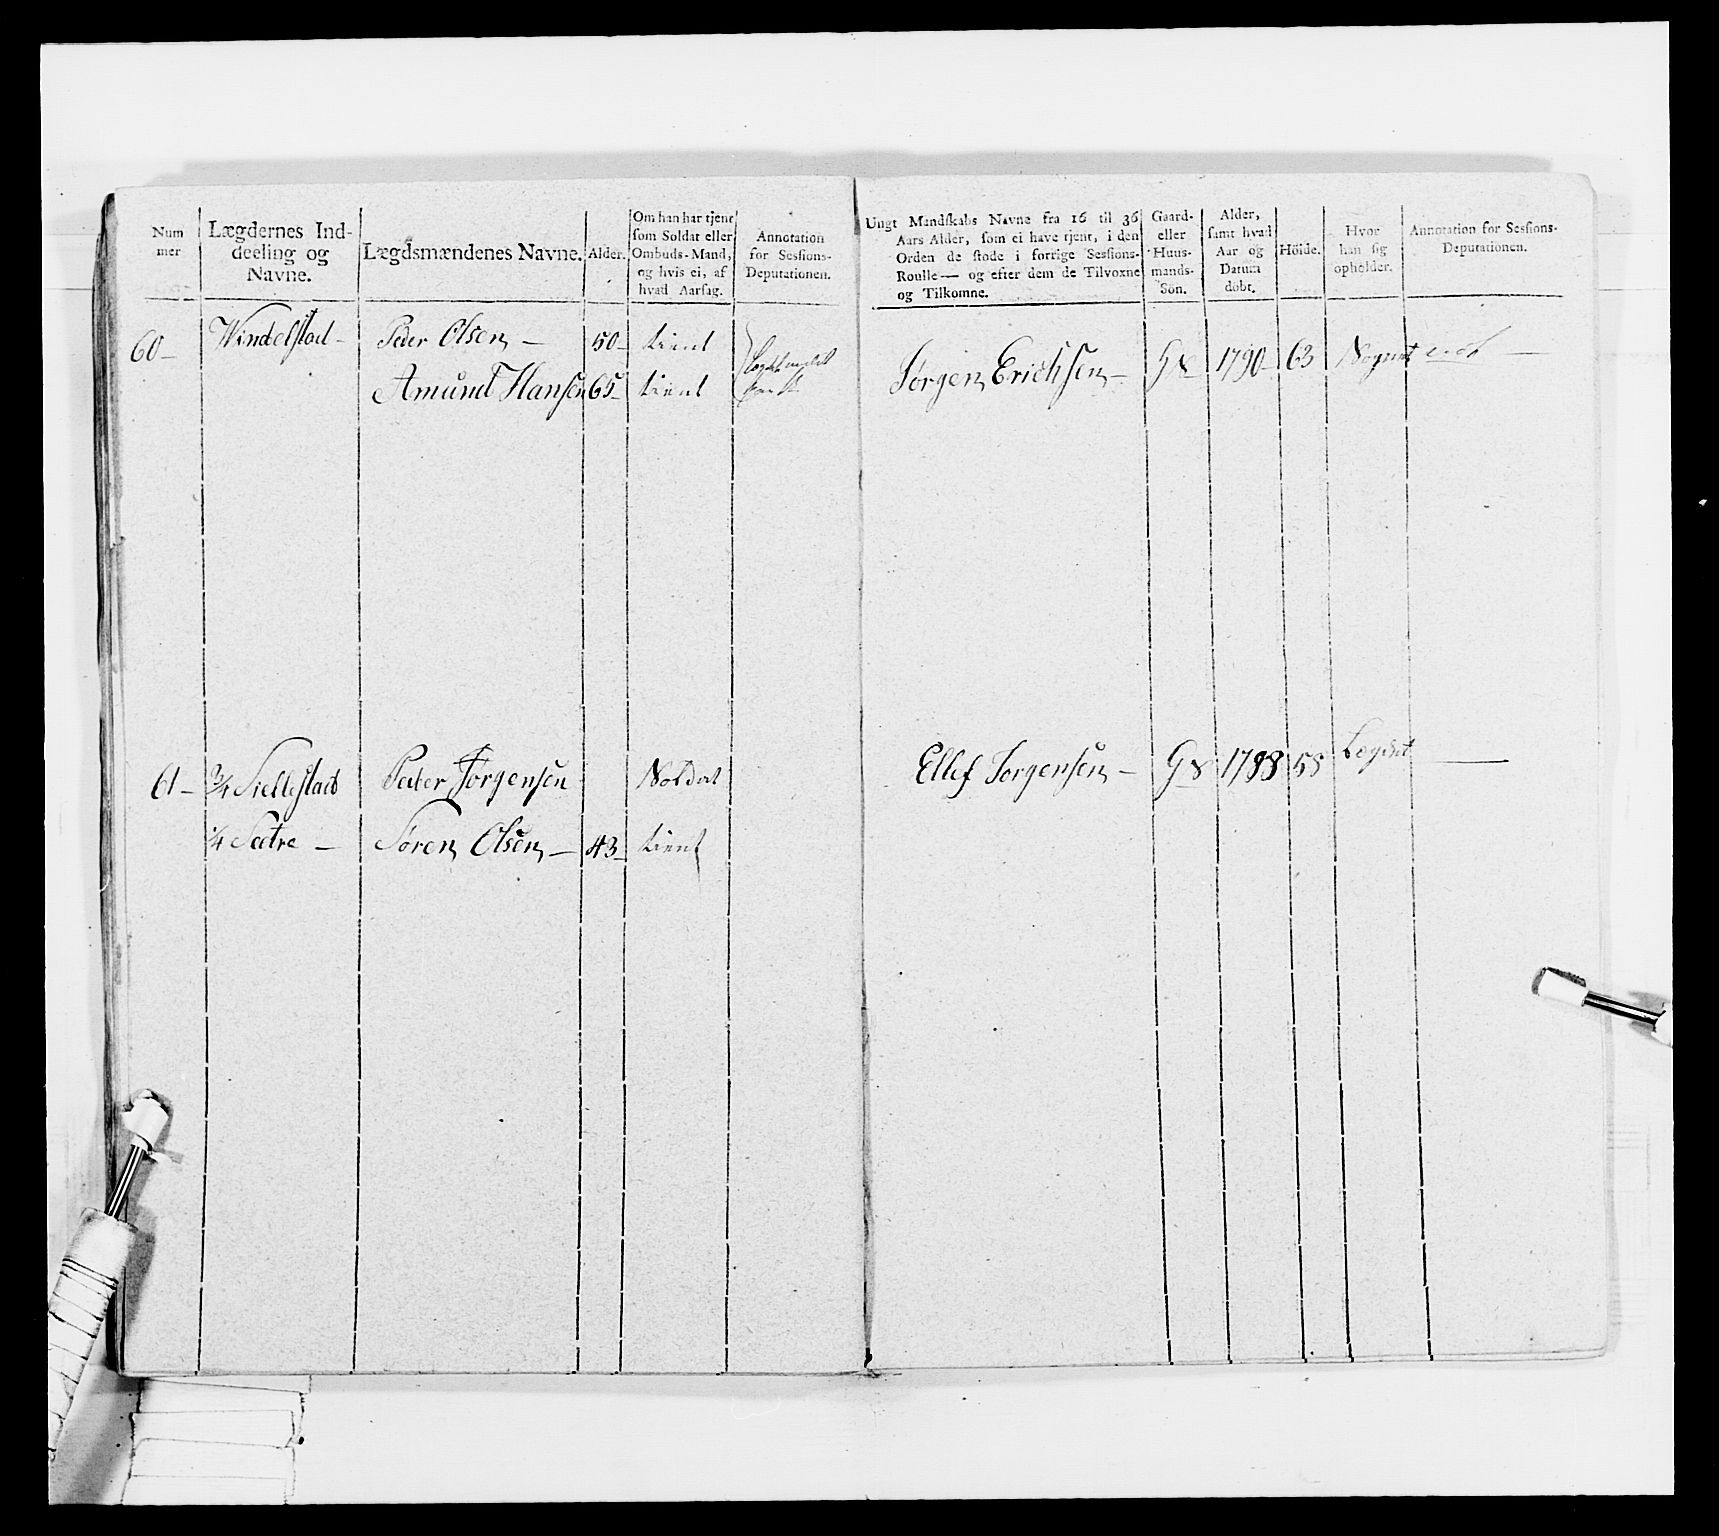 Num
mer
Lægdernes Ind-
deeling og
Navne.
Lægdsmændenes Navne.
Alder.
Om han har tjent
som Soldat eller
Ombuds-Mand,
og hvis ei, af
hvad Aarsag.
Annotation
for Sessions-
Deputationen.
60 — Windelstad — Peder Olsen — 50 — tient
Amund Hansen 65 — tient
61 — 3/4 Sillestad Peder Jørgensen Soldat
1/4 Sætre — Søren Olsen — 43 — tient
Ungt Mandskabs Navne fra 16 til 36
Aars Alder, som ei have tjent, i den
Orden de stode i forrige Sessions-
Roulle — og efter dem de Tilvoxne
og Tilkomne.
Gaard-
eller
Huus-
mands-
Sön.
Alder,
samt hvad
Aar og
Datum
döbt.
Höide.
Hvor
han sig
opholder.
Annotation for Sessions-
Deputationen.
Jørgen Erichsen — G 1790 — 63
Ellef Jorgensen — G 1788 58 Legdet —